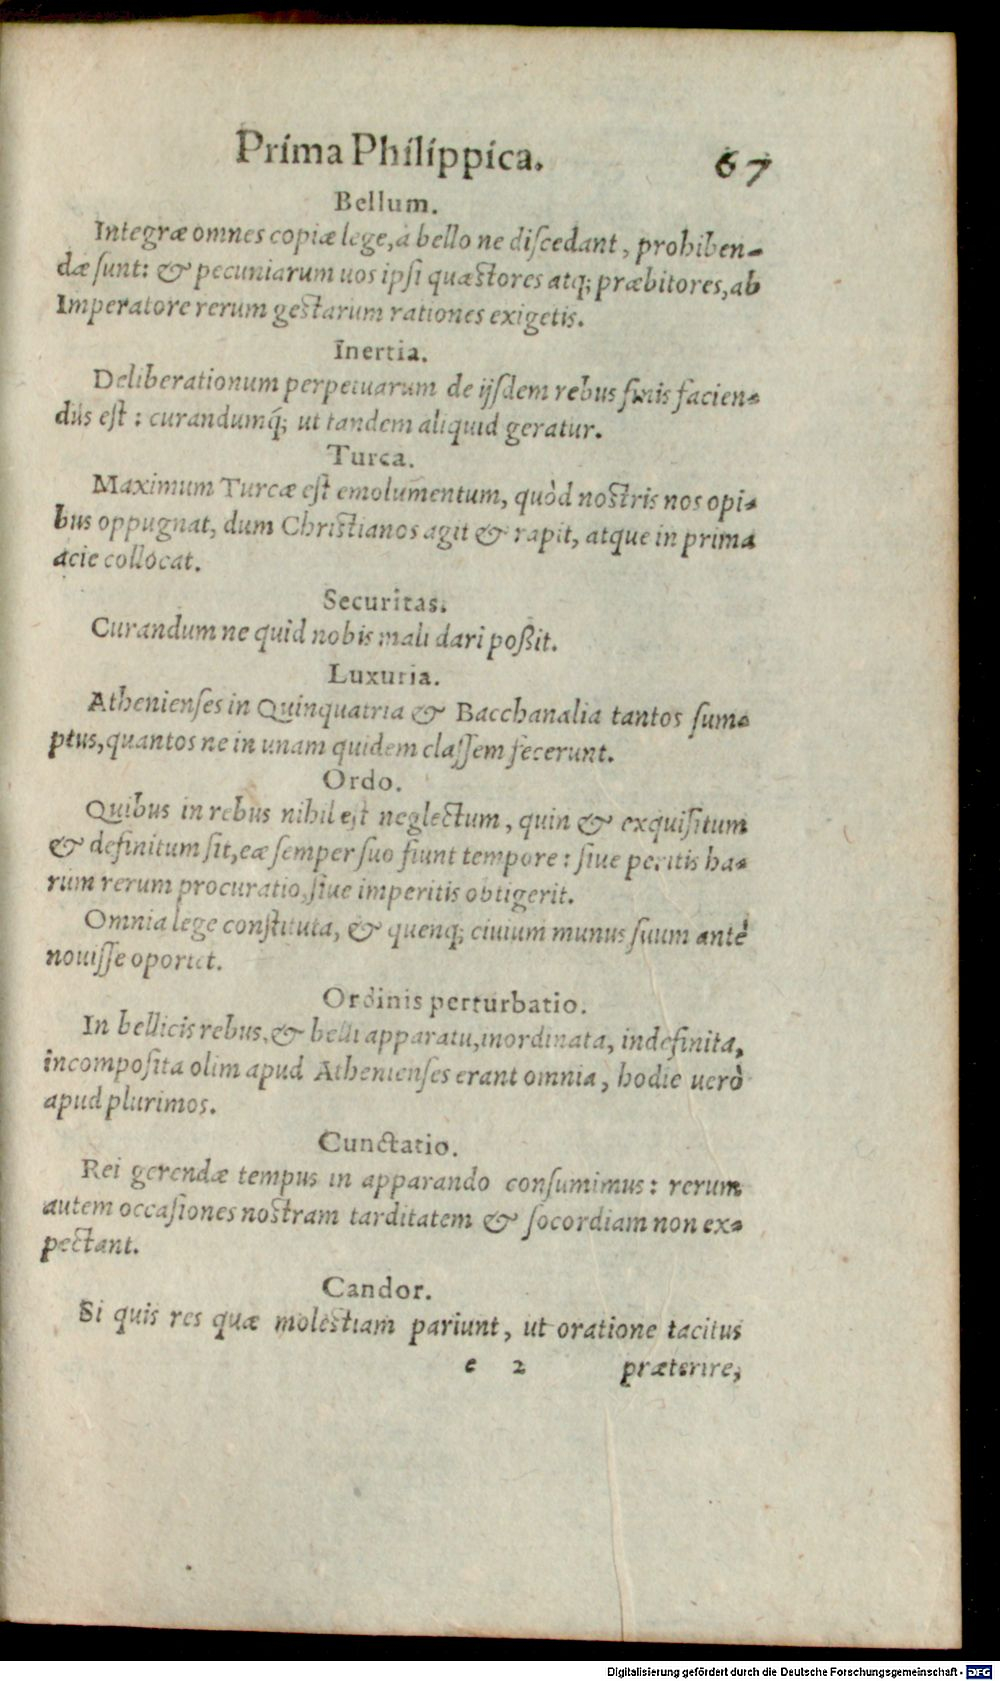 Prima Philippica.
67
Bellum.
Integræ omnes copiæ lege, à bello ne diſcedant, prohiben-
dæ ſunt: & pecuniarum uos ipſi quæſtores atq; præbitores, ab
Imperatore rerum geſtarum rationes exigetis.
Inertia.
Deliberationum perpetuarum de ijſdem rebus finis facien-
dus eſt: curandumq́; ut tandem aliquid geratur.
Turca.
Maximum Turcæ eſt emolumentum, quòd noſtris nos opi-
bus oppugnat, dum Chriſtianos agit & rapit, atque in prima
acie collocat.
Securitas.
Curandum ne quid nobis mali dari poßit.
Luxuria.
Athenienſes in Quinquatria & Bacchanalia tantos ſum-
ptus, quantos ne in unam quidem claſſem fecerunt.
Ordo.
Quibus in rebus nihil eſt neglectum, quin & exquiſitum
& definitum ſit, eæ ſemper ſuo fiunt tempore: ſiue peritis ha-
rum rerum procuratio, ſiue imperitis obtigerit.
Omnia lege conſtituta, & quenq; ciuium munus ſuum antè
nouiſſe oportet.
Ordinis perturbatio.
In bellicis rebus, & belli apparatu, inordinata, indefinita,
incompoſita olim apud Athenienſes erant omnia, hodie uerò
apud plurimos.
Cunctatio.
Rei gerendæ tempus in apparando conſumimus: rerum
autem occaſiones noſtram tarditatem & ſocordiam non ex-
pectant.
Candor.
Si quis res quæ moleſtiam pariunt, ut oratione tacitus
e 2 præterire,
Digitalisierung gefördert durch die Deutsche Forschungsgemeinschaft - DFG